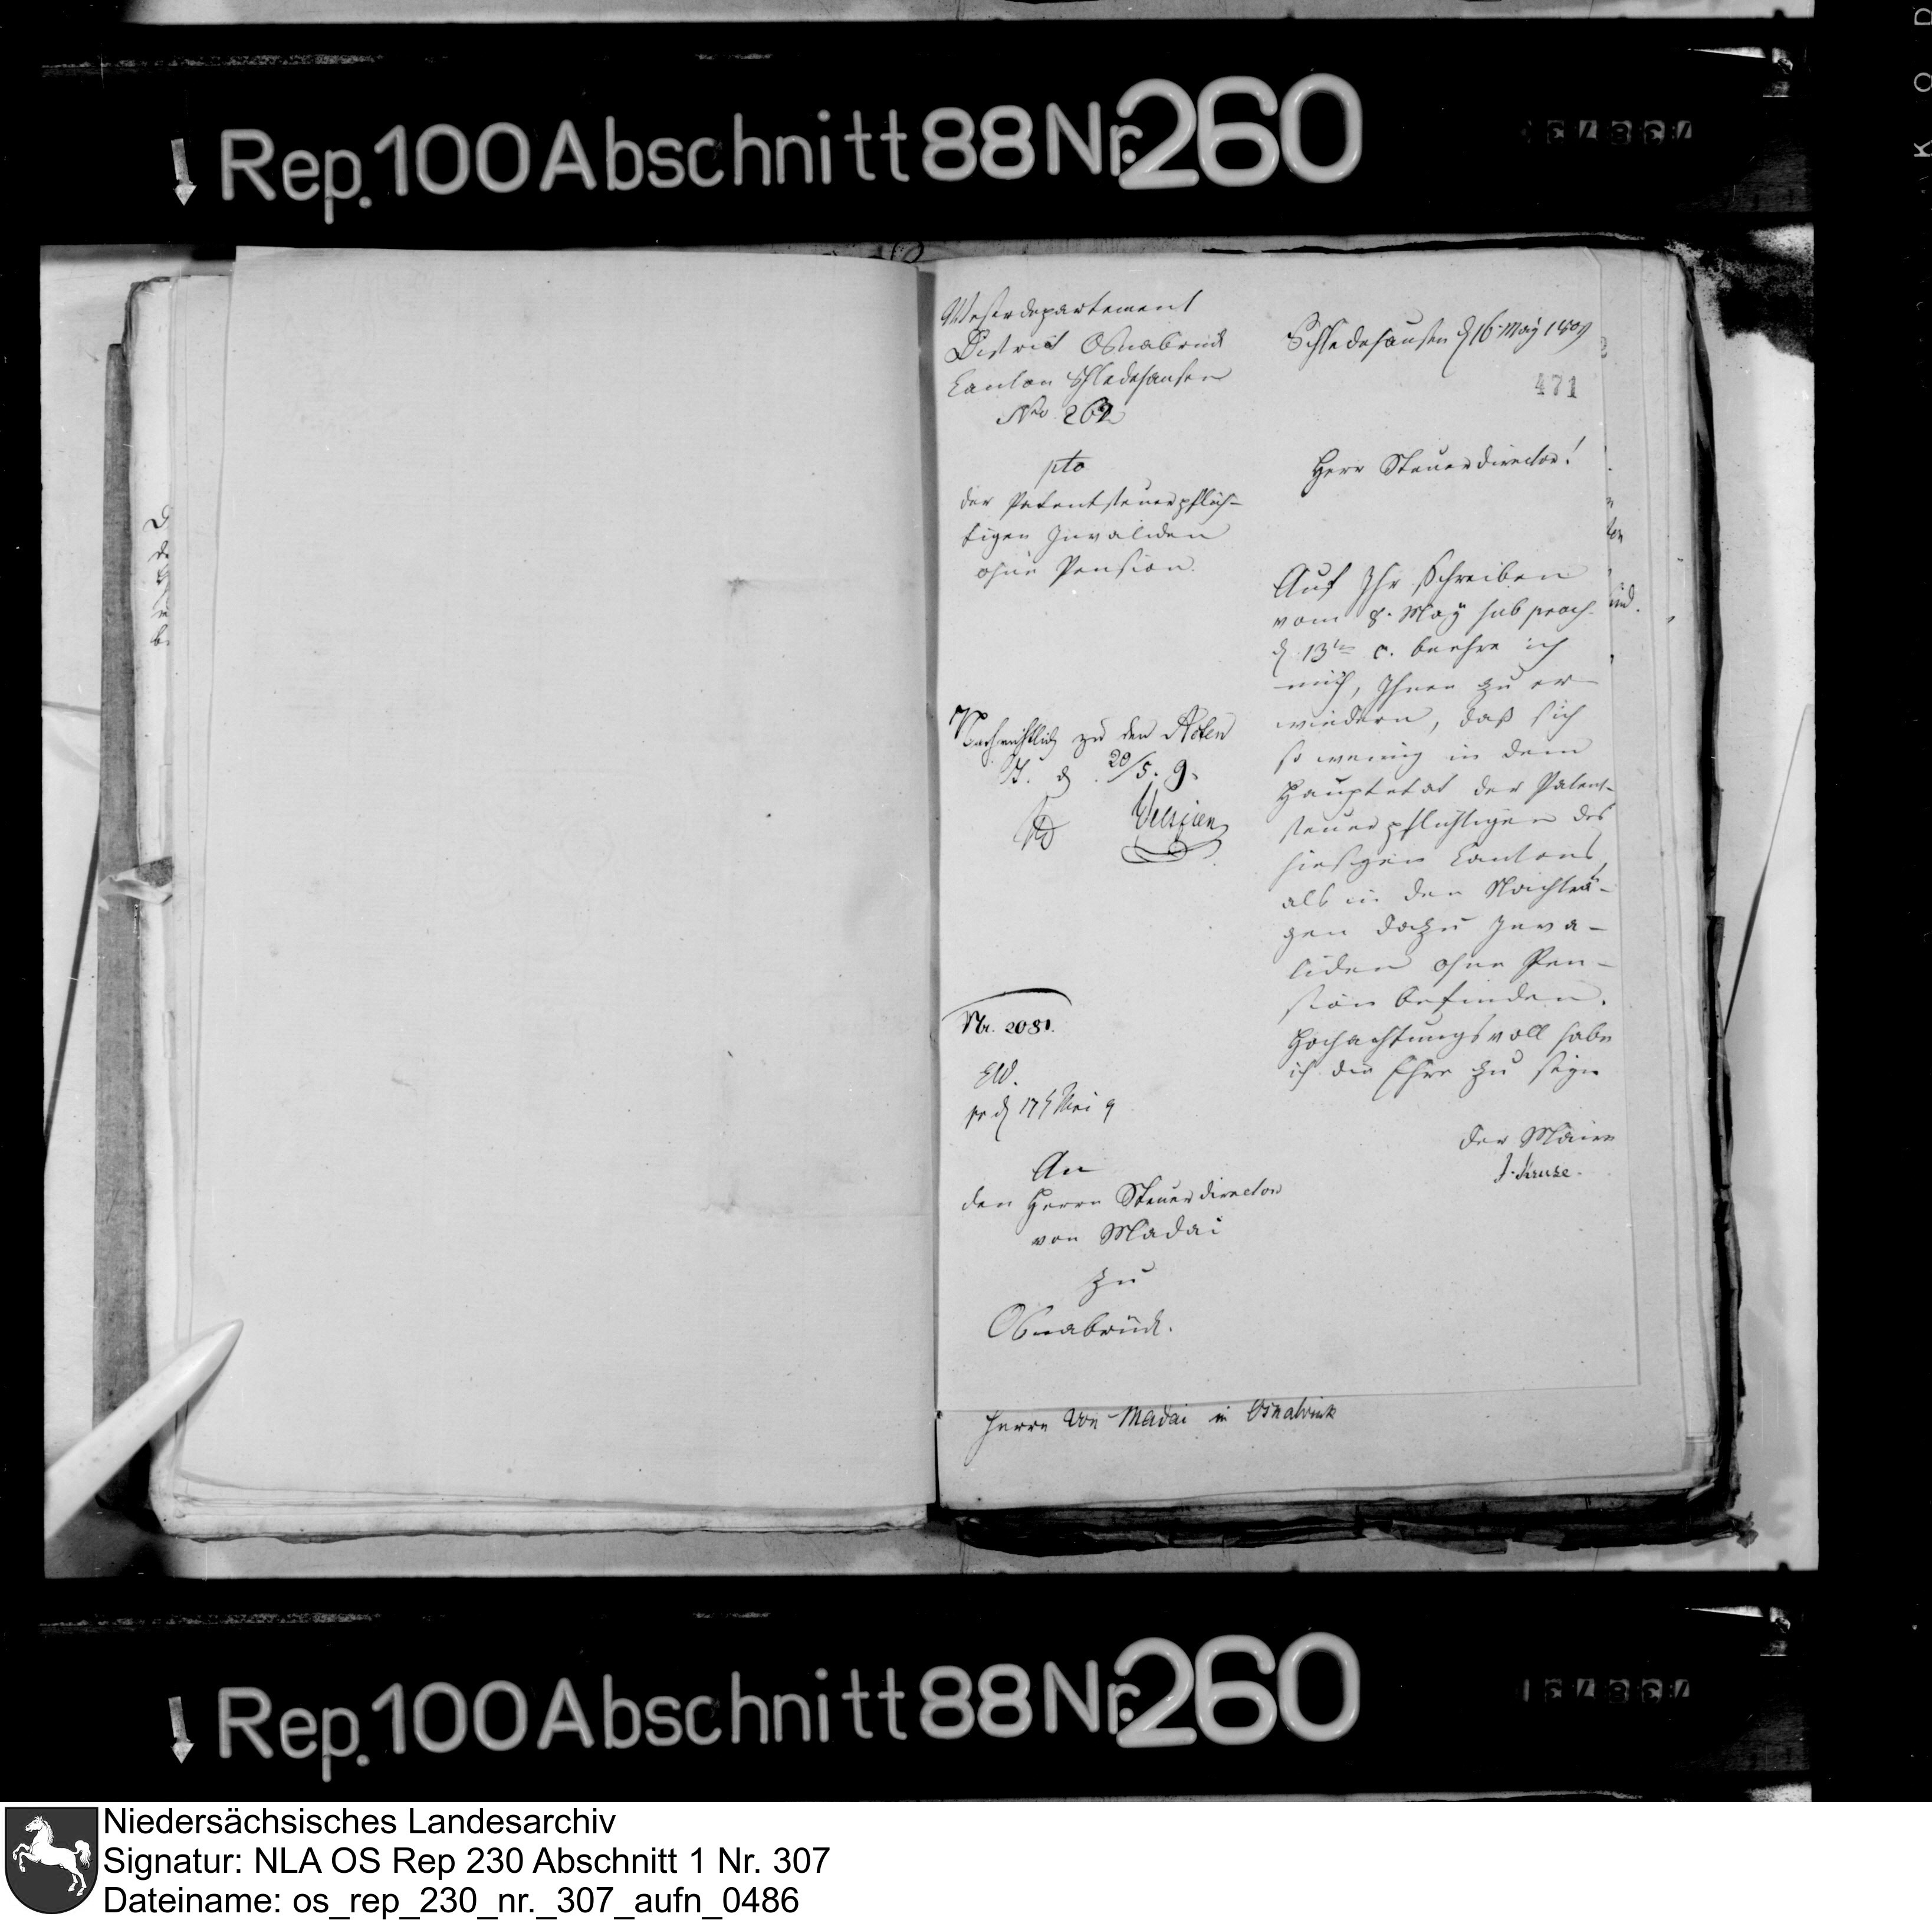 Rep. 100 Abschnitt 88 Nr. 260
Weserdepartement
District Osnabrück
Canton Schledehausen
No 262
Schledehausen d 16 May 1809
471
pto
der Patentsteuerpflich-
tigen Invaliden
ohne Pension.
Herr Steuerdirector!
Auf Ihr Schreiben
vom 8. May sub praes.
d 13ten c. beehre ich
mich, Ihnen zu er-
wiedern, daß sich
so wenig in dem
Hauptetat der Patent-
steuerpflichtigen des
hiesigen Cantons,
als in den Nachträ-
gen dazu Inva-
liden ohne Pen-
sion befinden.
Hochachtungsvoll habe
ich die Ehre zu seyn
der Maire
J. Kruse.
Nachrichtlich zu den Acten
d. 20/5. 9.
Nr. 2081.
pr d 17 Mai 9
An
den Herrn Steuerdirector
von Madai
zu
Osnabrück.
Herrn von Madai in Osnabrück
Rep. 100 Abschnitt 88 Nr. 260
Niedersächsisches Landesarchiv
Signatur: NLA OS Rep 230 Abschnitt 1 Nr. 307
Dateiname: os_rep_230_nr._307_aufn_0486